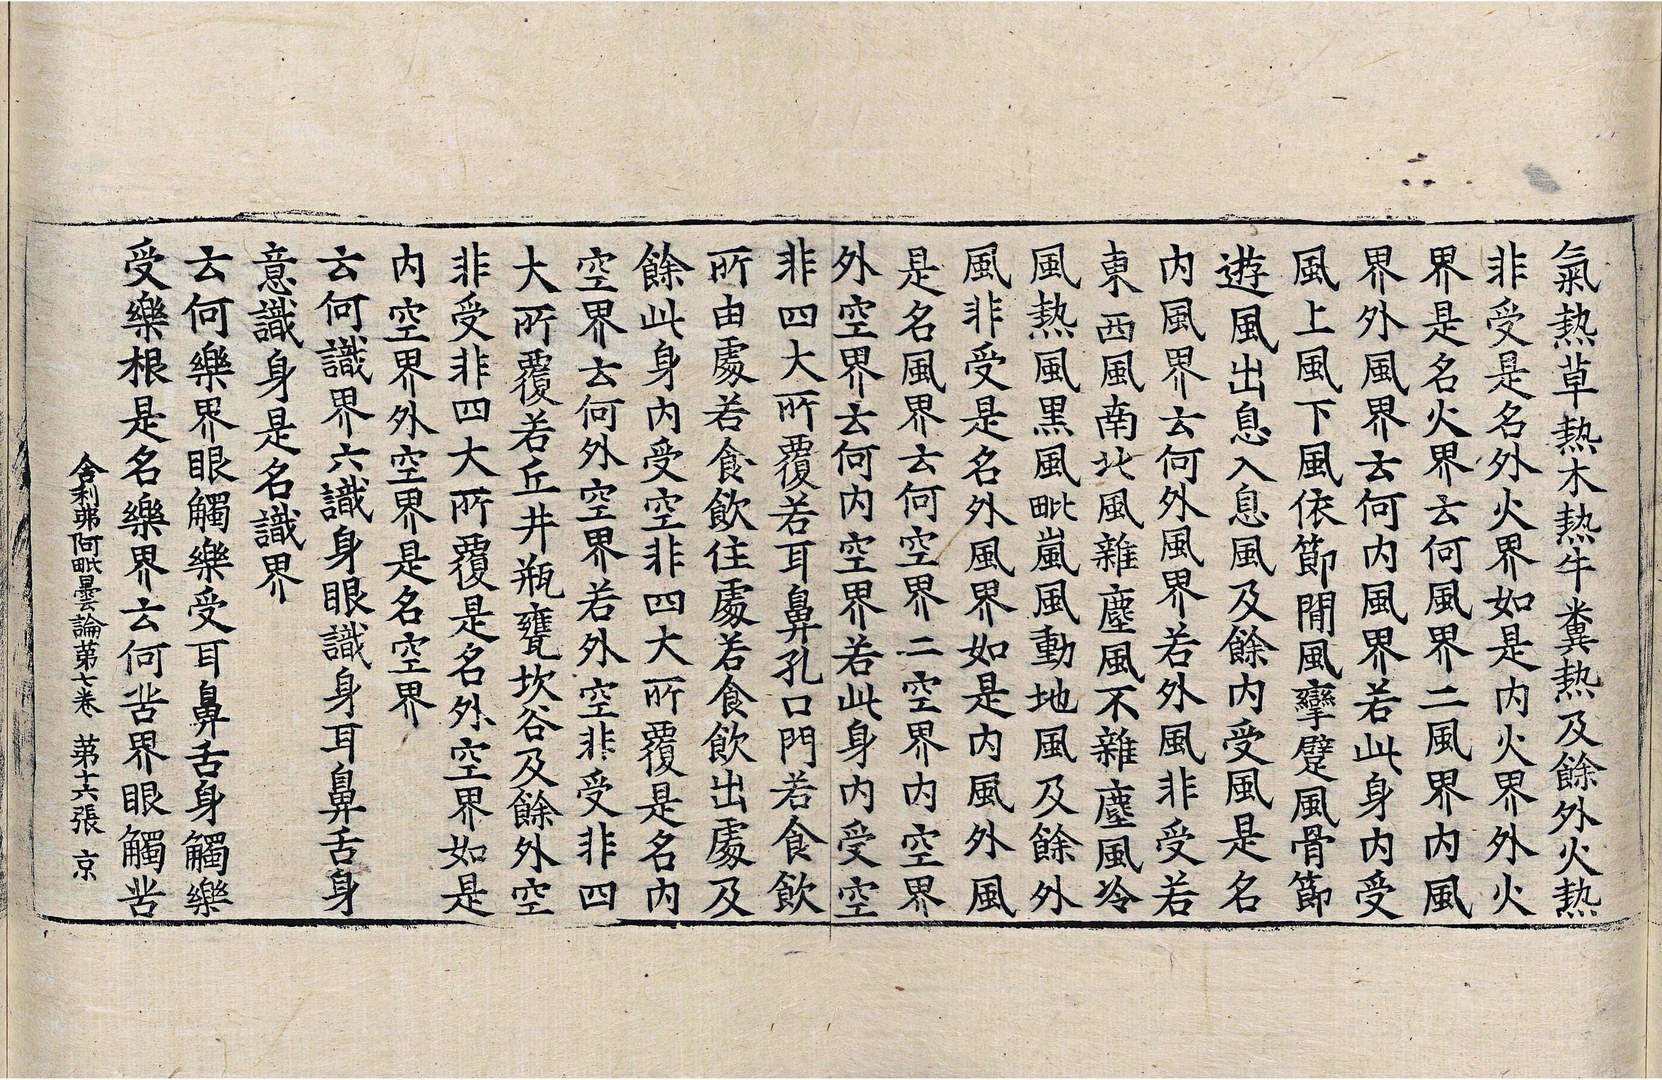 氣熱草熱木熱牛糞熱及餘外火熱
非受是名外火界如是內火界外火
界是名火界云何風界二風界內風
界外風界云何內風界若此身內受
風上風下風依節閒風攣躄風骨節
遊風出息入息風及餘內受風是名
內風界云何外風界若外風非受若
東西風南北風雜塵風不雜塵風冷
風熱風黑風毗嵐風動地風及餘外
風非受是名外風界如是內風外風
是名風界云何空界二空界內空界
外空界云何內空界若此身內受空
非四大所覆若耳鼻孔口門若食飮
所由處若食飮住處若食飮出處及
餘此身內受空非四大所覆是名內
空界云何外空界若外空非受非四
大所覆若丘井瓶甕坎谷及餘外空
非受非四大所覆是名外空界如是
內空界外空界是名空界
云何識界六識身眼識身耳鼻舌身
意識身是名識界
云何樂界眼觸樂受耳鼻舌身觸樂
受樂根是名樂界云何苦界眼觸苦
舍利弗阿毗曇論第七卷 第十六張 京